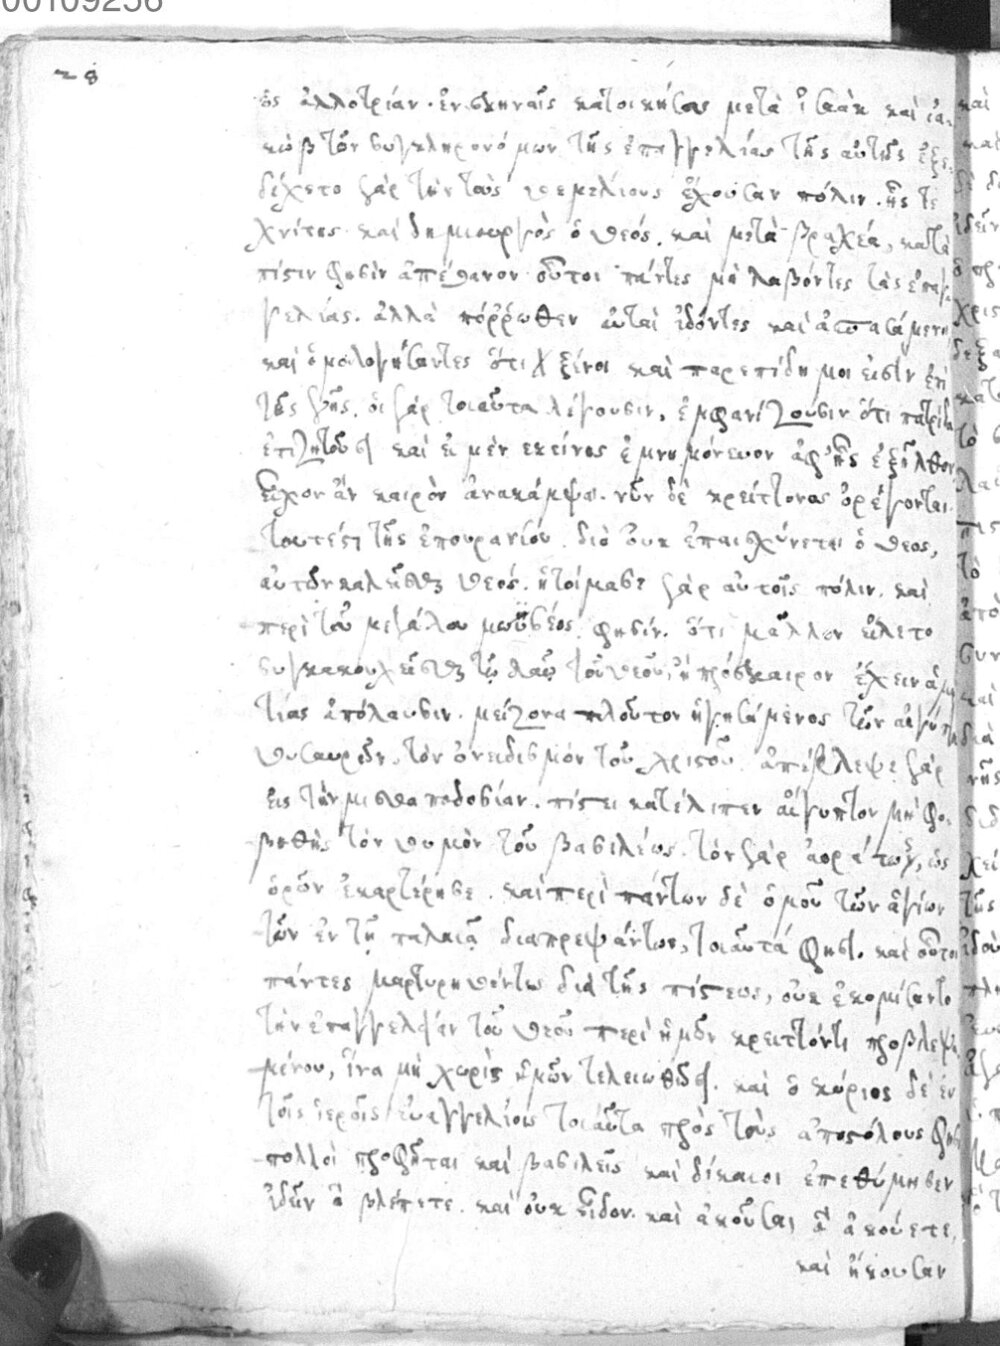 00109256
28
ὡς ἀλλοτρίαν. ἐν σκηναῖς κατοικήσας μετὰ ἰσαὰκ καὶ ἰα
κὼβ τῶν συγκληρονόμων τῆς ἐπαγγελίας τῆς αὐτῆς ἐξε
δέχετο γὰρ τὴν τοὺς θεμελίους ἔχουσαν πόλιν. ἧς τε
χνίτης καὶ δημιουργὸς ὁ θεός. καὶ μετὰ βραχέα, κατὰ
πίστιν φησὶν ἀπέθανον οὗτοι πάντες μὴ λαβόντες τὰς ἐπαγ
γελίας. ἀλλὰ πόρρωθεν αὐταὶ ἰδόντες καὶ ἀσπασάμενοι
καὶ ὁμολογήσαντες ὅτι ξένοι καὶ παρεπίδημοι εἰσὶν ἐπὶ
τῆς γῆς. οἱ γὰρ τοιαῦτα λέγουσιν, ἐμφανίζουσιν ὅτι πατρίδα
ἐπιζητοῦσι καὶ εἰ μὲν ἐκείνης ἐμνημόνευον ἀφ' ἧς ἐξῆλθον
εἶχον ἂν καιρὸν ἀνακάμψαι. νῦν δὲ κρείττονος ὀρέγονται
τουτέστι τῆς ἐπουρανίου. διὸ οὐκ ἐπαισχύνεται ὁ θεος,
αὐτῶν καλεῖσθαι θεός. ἡτοίμασε γὰρ αὐτοῖς πόλιν. καὶ
περὶ τοῦ μεγάλου μωϋσέος φησίν. ὅτι μᾶλλον εἵλετο
συγκακουχεῖσθαι τῷ λαῷ τοῦ θεοῦ, ἢ πρόσκαιρον ἔχειν ἁμαρ
τίας ἀπόλαυσιν. μείζονα πλοῦτον ἡγησάμενος τῶν αἰγύπτου
θυσαυρῶν, τὸν ὀνειδισμὸν τοῦ χριστοῦ. ἀπέβλεψε γὰρ
εἰς τὴν μισθαποδοσίαν. πίστει κατέλιπεν αἴγυπτον μὴ φο
βηθῆς τὸν θυμὸν τοῦ βασιλέως. τὸν γὰρ ἀορατως, ὡς
ὁρῶν ἐκαρτέρησε. καὶ περὶ πάντων δὲ ὁμοῦ τῶν ἁγίων
τῶν ἐν τῇ παλαιᾷ διαπρεψάντων, τοιαῦτά φησι. καὶ οὗτοι
πάντες μαρτυρηθέντες διὰ τῆς πίστεως, οὐκ ἐκομίσαντο
τὴν ἐπαγγελίαν τοῦ θεοῦ περὶ ἡμῶν κρειττόντι προβλεψα
μένου, ἵνα μὴ χωρὶς ἡμῶν τελειωθῶσι. καὶ ὁ κύριος δὲ ἐν
τοῖς ἱεροῖς εὐαγγελίοις τοιαῦτα πρὸς τοὺς ἀποστόλους φησι
πολλοὶ προφῆται καὶ βασιλεῖς καὶ δίκαιοι ἐπεθύμησεν
ἰδεῖν ἃ βλέπετε. καὶ οὐκ εἶδον. καὶ ἀκοῦσαι ἃ ἀκούετε,
καὶ ἤκουσαν